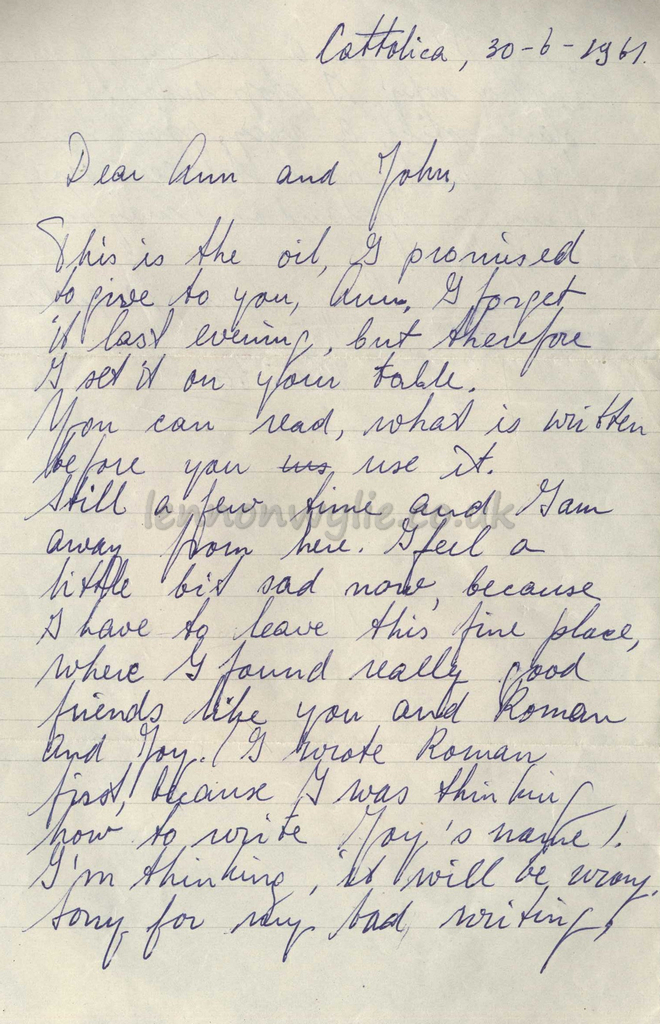 Cattolica, 30-6-1961.
Dear Ann and John,
This is the oil, I promised
to give to you, Ann, I forget
it last evening, but therefore
I set it on your table.
You can read, what is written
before you us use it.
Still a few time and I am
away from here. I feel a
little bit sad now, because
I have to leave this fine place,
where I found really good
friends like you and Roman
and Joy. (I wrote Roman
first, because I was thinking
how to write Joy's name).
I'm thinking, it will be wrong.
Sorry for my bad, writing,
lennonwylie.co.uk